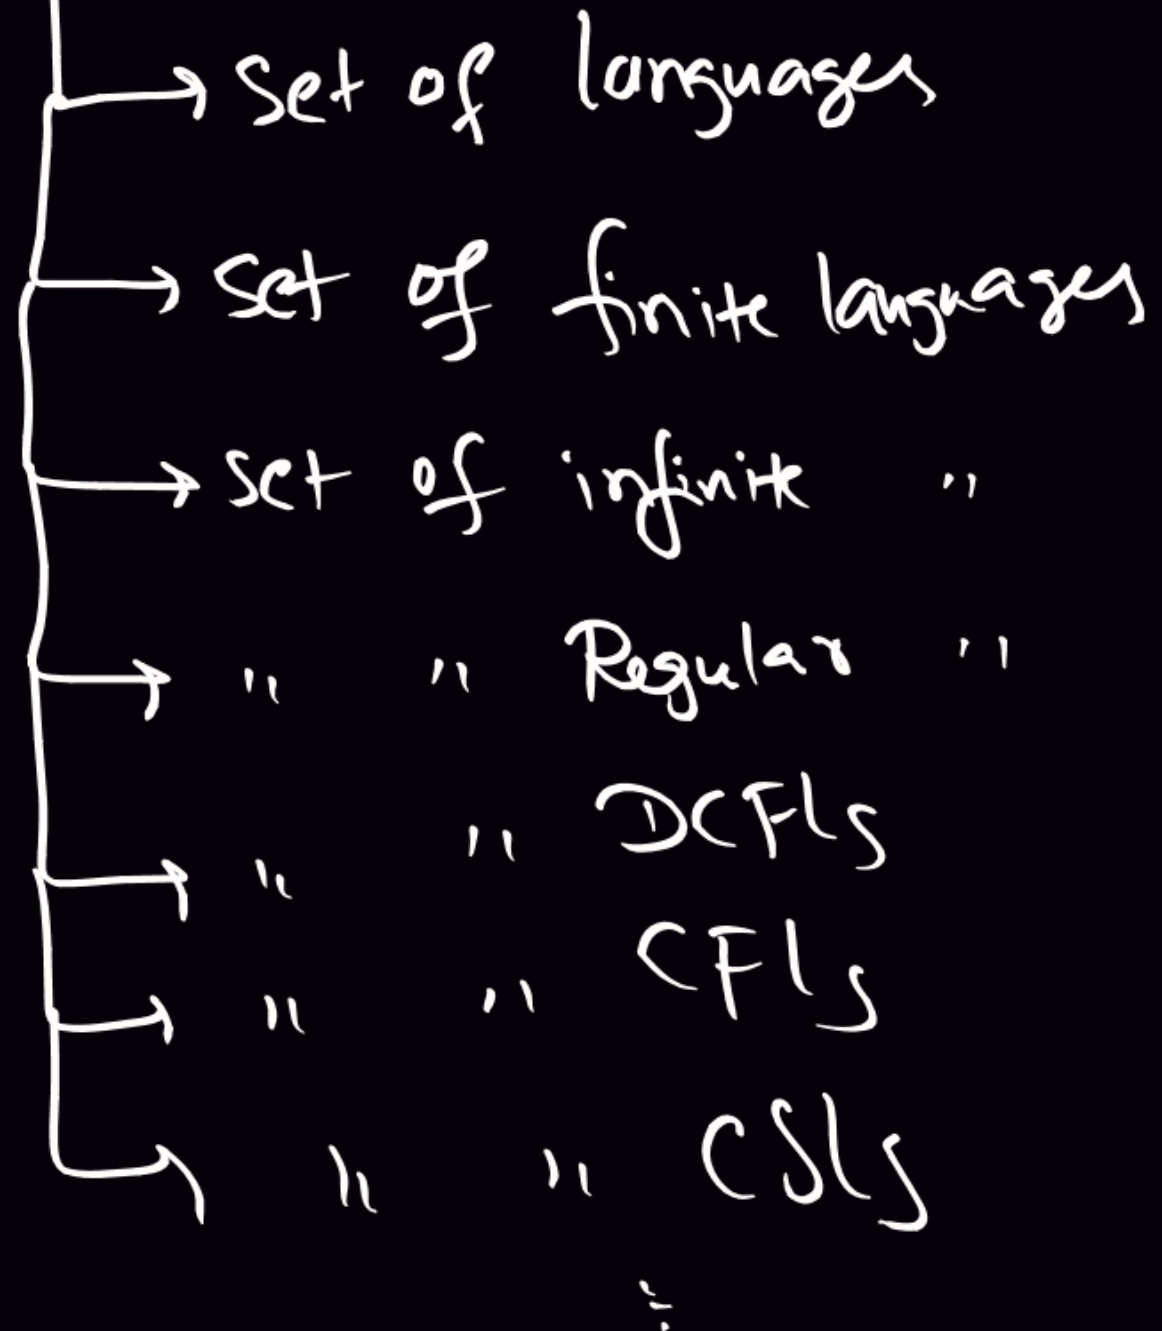 → Set of languages
→ Set of finite languages
→ Set of infinite "
→ " " Regular "
→ " " DCFLs
→ " " CFLs
→ " " CSLs